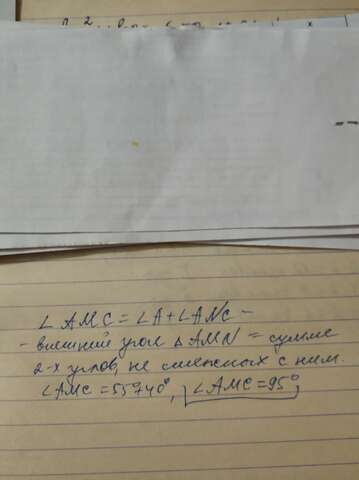 ∠AMC = ∠A + ∠ANC -
- внешний угол △AMN = сумме
2-х углов, не смежных с ним.
∠AMC = 55°+40°, ∠AMC = 95°,